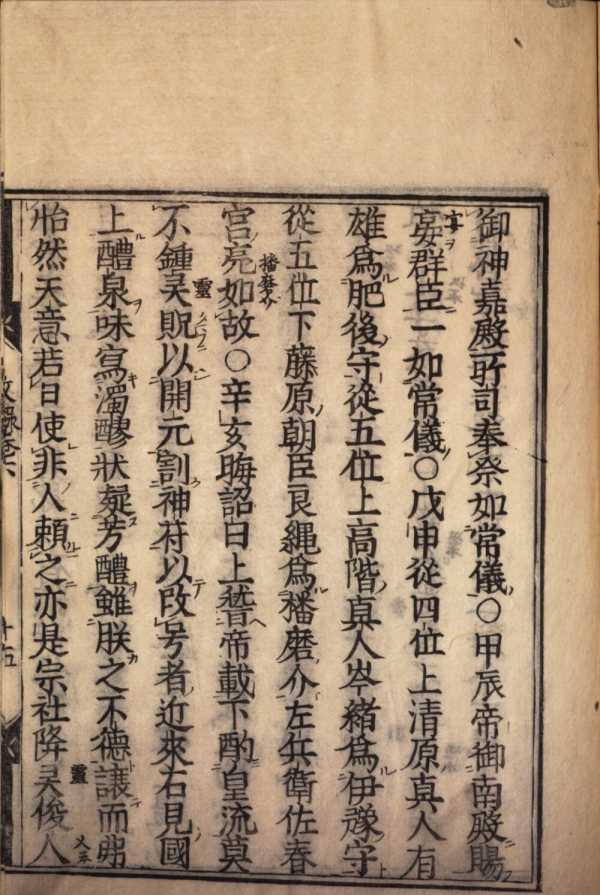 御神嘉殿所司奉祭如常儀○甲辰帝御南殿賜
宴群臣一如常儀○戊申從四位上清原真人有
雄為肥後守從五位上高階真人岑緒為伊豫守
從五位下藤原朝臣良縄為播磨介左兵衛佐春
宮亮如故○辛亥晦詔曰上替帝載下酌皇流莫
不鍾灵貺以開元割神符以改号者近來石見國
上醴泉味寫濁醪狀疑芳醴雖朕之不德讓而弗
怡然天意若曰使非人頼之亦是宗社降灵俊人